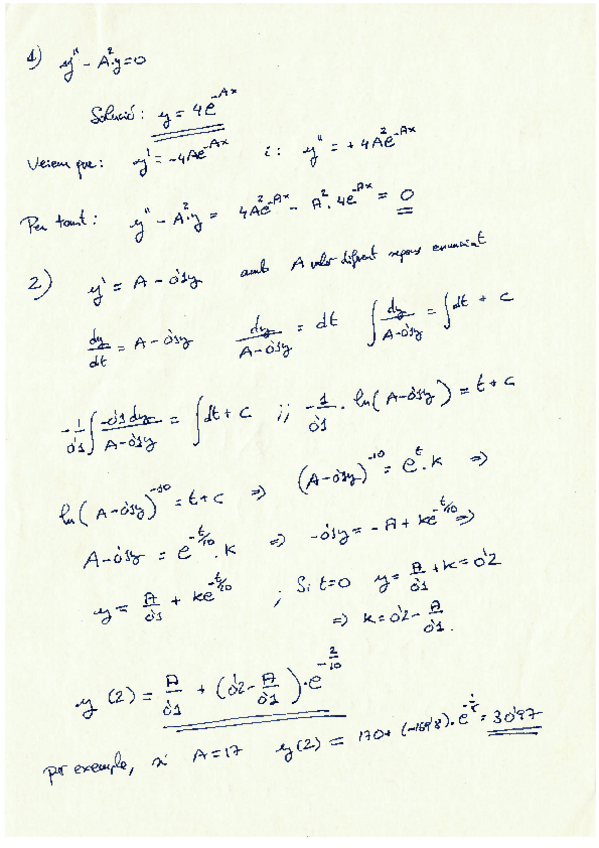 1) y'' - A²·y = 0
Solució: y = 4e^{-Ax}
Veiem que: y' = -4Ae^{-Ax} i: y'' = +4A²e^{-Ax}
Per tant: y'' - A²·y = 4A²e^{-Ax} - A²·4e^{-Ax} = 0
2) y' = A - 0'1y amb A valor diferent segons enunciat
dy/dt = A - 0'1y dy/(A-0'1y) = dt ∫ dy/(A-0'1y) = ∫dt + c
-1/0'1 ∫ -0'1dy/(A-0'1y) = ∫dt + c ;; -1/0'1 · ln(A-0'1y) = t + c
ln(A-0'1y)^{-10} = t + c ⇒ (A-0'1y)^{-10} = e^t·K ⇒
A-0'1y = e^{-t/10}·K ⇒ -0'1y = -A + Ke^{-t/10} ⇒
y = A/0'1 + Ke^{-t/10} ; Si t=0 y = A/0'1 + K = 0'2
⇒ K = 0'2 - A/0'1.
y(2) = A/0'1 + (0'2 - A/0'1)·e^{-2/10}
per exemple, si A=17 y(2) = 170 + (-169'8)·e^{-1/5} = 30'97